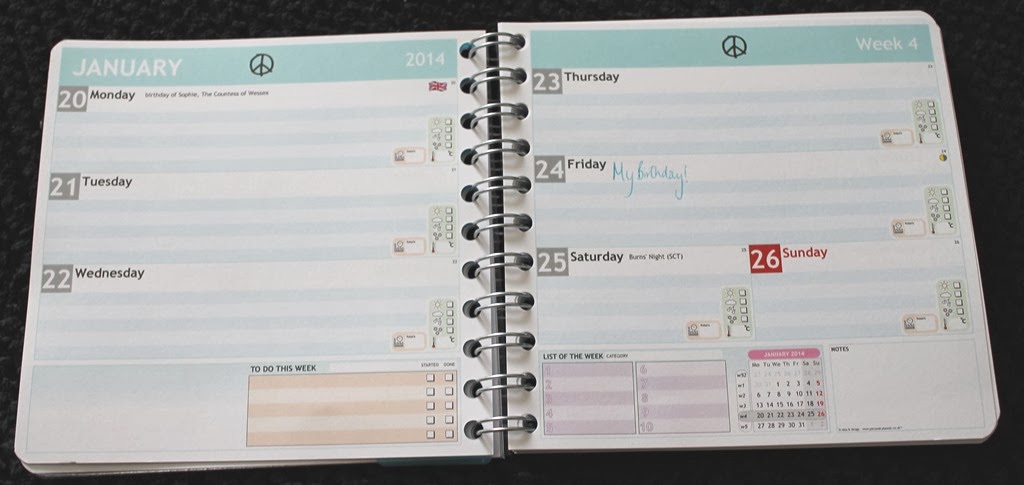 JANUARY 2014
20 Monday birthday of Sophie, The Countess of Wessex
21 Tuesday
22 Wednesday
TO DO THIS WEEK STARTED DONE
Week 4
23 Thursday
24 Friday My Birthday!
25 Saturday Burns' Night (SCT)
26 Sunday
LIST OF THE WEEK CATEGORY
1 6
2 7
3 8
4 9
5 10
JANUARY 2014
Mo Tu We Th Fr Sa Su
w1 1 2 3 4 5
w2 6 7 8 9 10 11 12
w3 13 14 15 16 17 18 19
w4 20 21 22 23 24 25 26
w5 27 28 29 30 31 1 2
NOTES